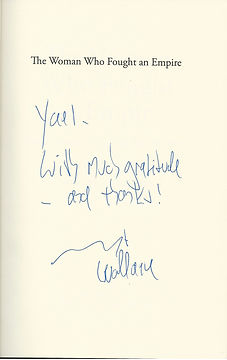 The Woman Who Fought an Empire
Yael-
With much gratitude
- and thanks!
Wallace